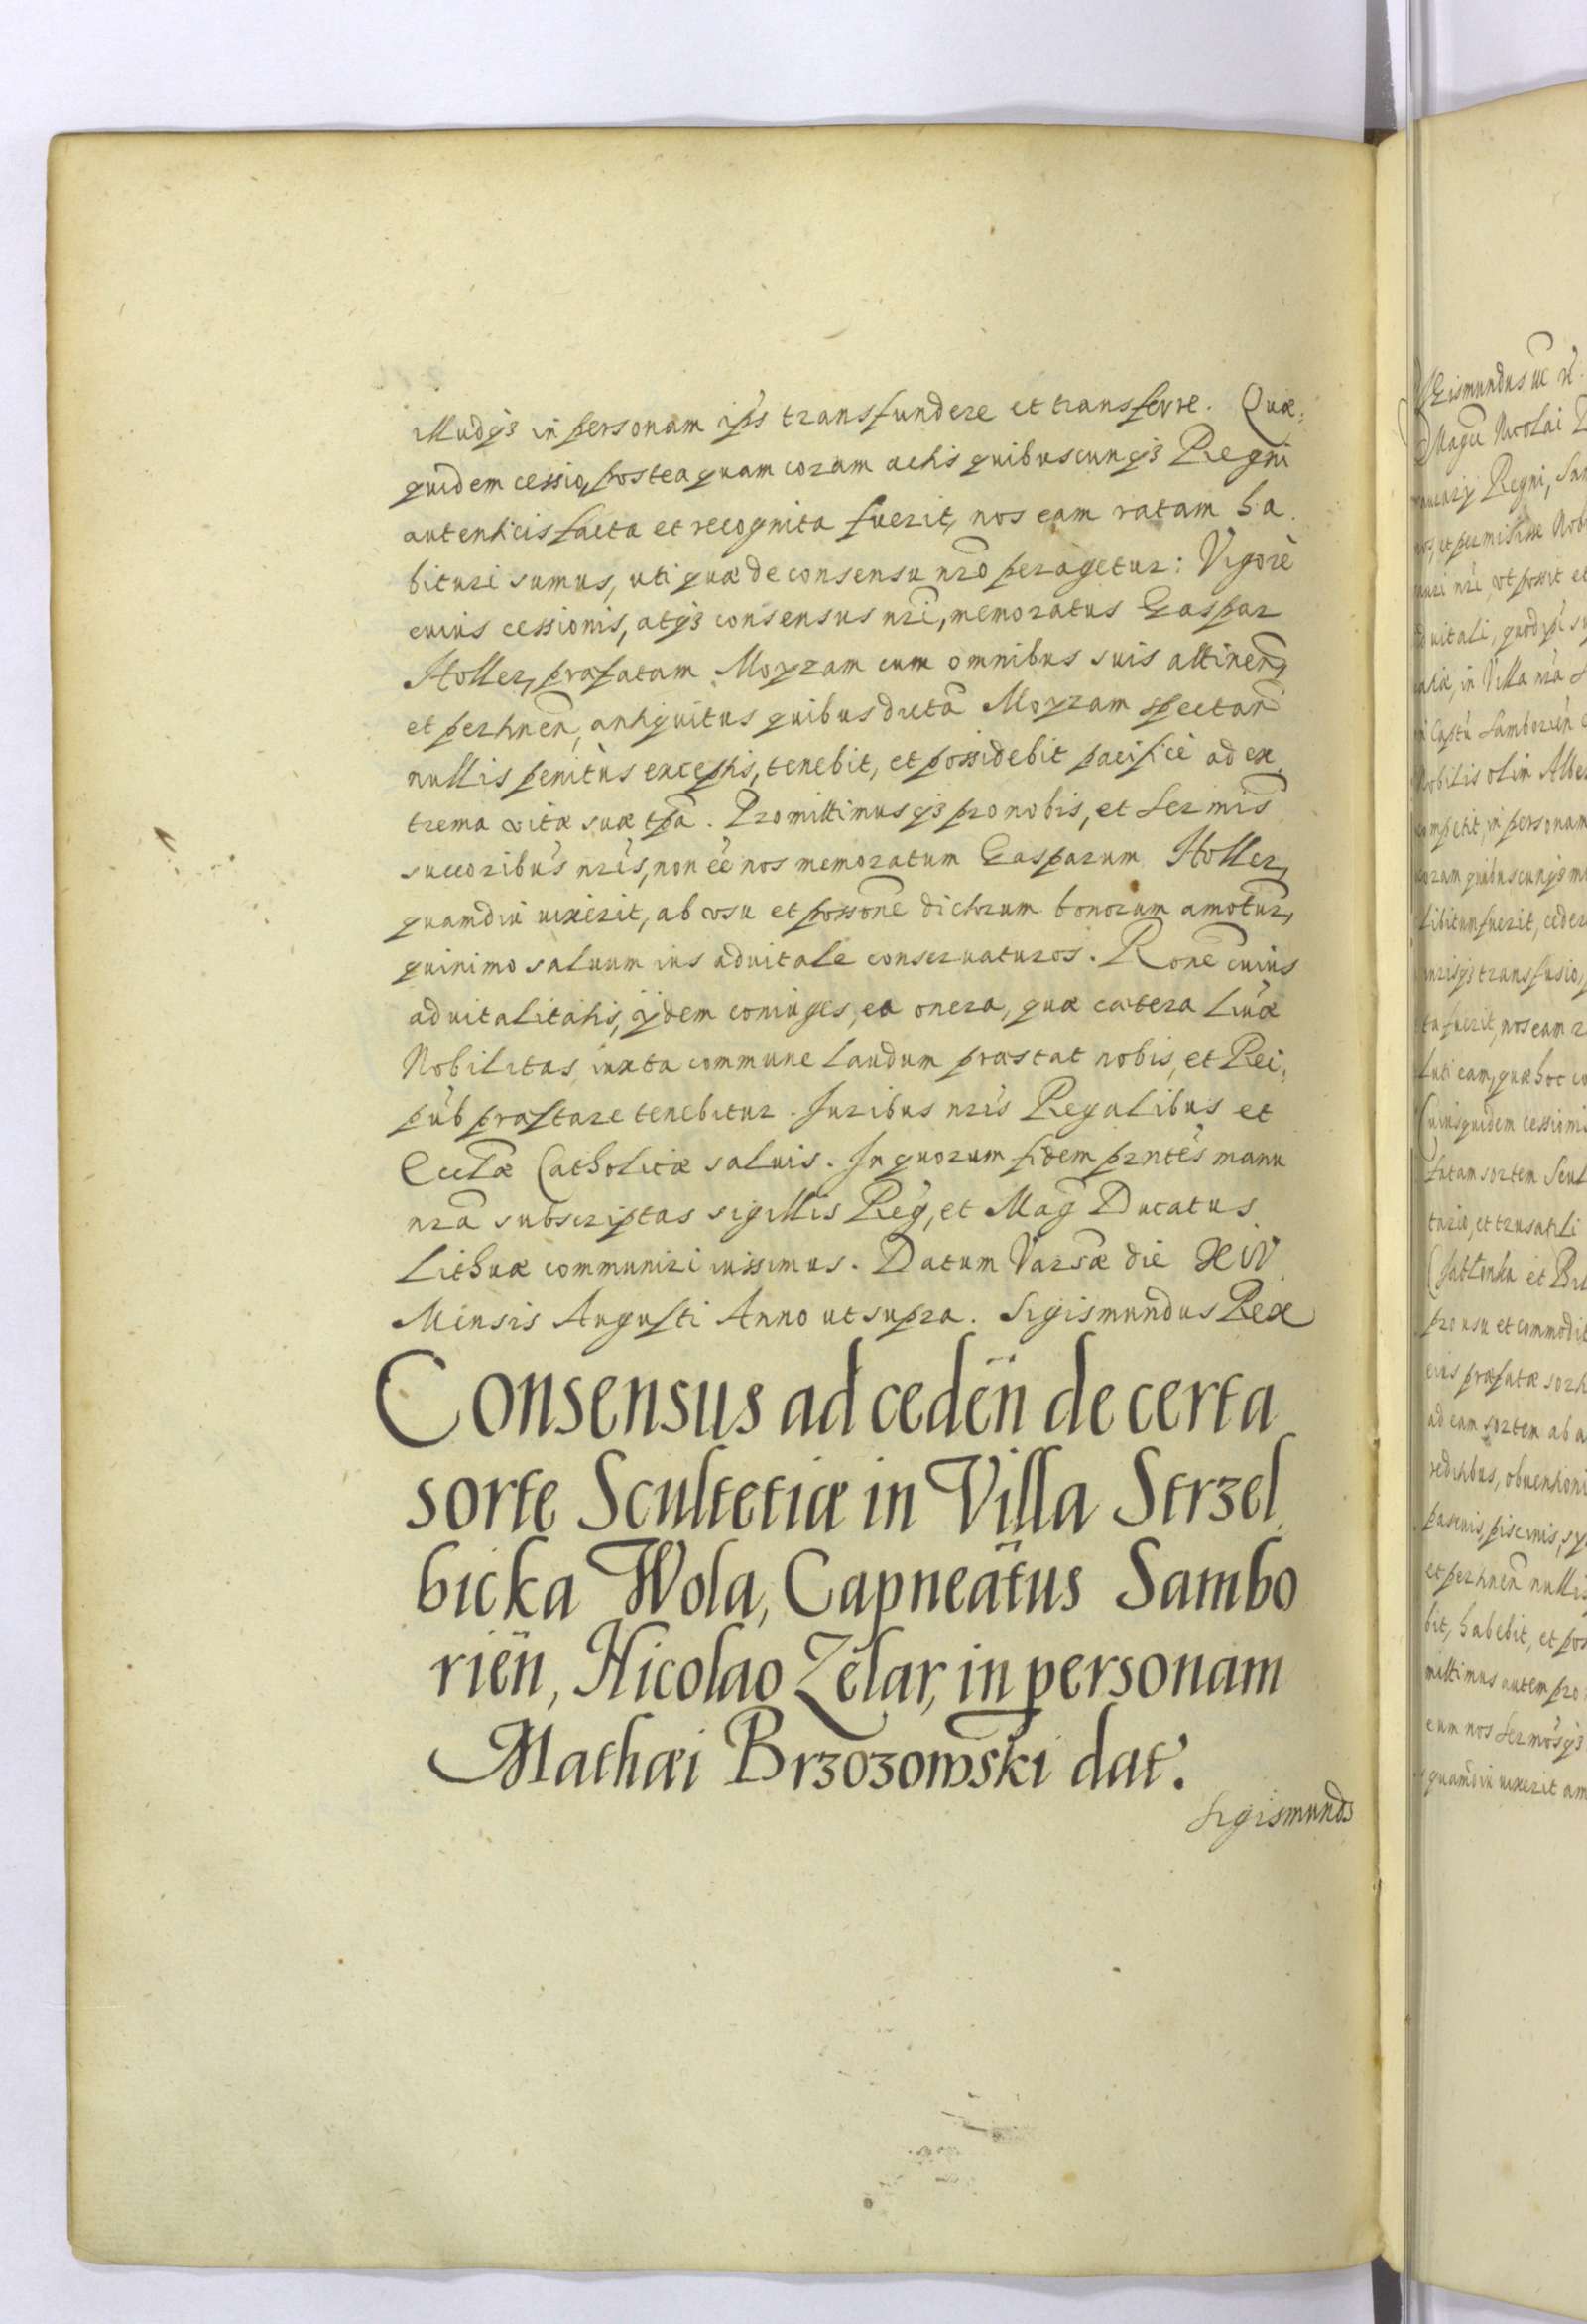 illudq3 in personam ips transfundere et transferre. Quæ,
quidem cessio, postea quam coram actis quibuscunq3 Regni
autenticis facta et recognita fuerit, nos eam ratam ha
bituri sumus, uti quæ de consensu nrō peragetur: Vigore
cuius cessionis, atq3 consensus nrī, memoratus Gaspar
Holler, præfatam Moyzam cum omnibus suis attinen,
et pertinen, antiquitus quibus dictā Moyzam spectan
nullis penitùs exceptis, tenebit, et possidebit pacificè ad ex
trema vitæ suæ tpā. Promittimusq3 pro nobis, et Sermis
succoribūs nrīs, non eē nos memoratum Gasparum Holler,
quamdiu uixerit, ab vsu et possone dictorum bonorum amotur,
quinimo saluum ius aduitale conseruaturos. Rone cuius
aduitalitatis, ijdem coniuges, ea onera, quæ cætera Liuæ
Nobilitas, iuxta commune laudum præstat nobis, et Rei,
pub præstare tenebitur. Juribus nrīs Regalibus et
Ecclæ Catholicæ saluis. In quorum fidem prntēs manu
nrā subscriptas sigillis Reg, et Mag Ducatus
Lithuæ communiri iussimus. Datum Varsæ die XIV
Mensis Augusti Anno ut supra. Sigismundus Rex
Consensus ad ceden de certa
sorte Scultetiæ in Villa Strzel
bicka Wola, Capneātus Sambo
rien, Nicolao Zelar, in personam
Mathæi Brzozowski dat.
Sigismunds
Sigismundus
Magci Nicolai
Regni, San
in Villa nrā
Samborien
Nobilis olim Albe
competit, in personam
coram quibuscunq3
libitum fuerit, ceder
transfusio,
fuerit, nos eam r
uti eam, quæ hoc co
Cuiusquidem cessionis
fatam sortem Scul
pro usu et commodit
eius præfatæ sorti
ad eam sortem ab a
redibus, obuentioni
piscinis, sy
et pertinen nullis
bit, habebit, et pos
mittimus autem pro
eum nos Sermosq3
quamdiu uixerit am